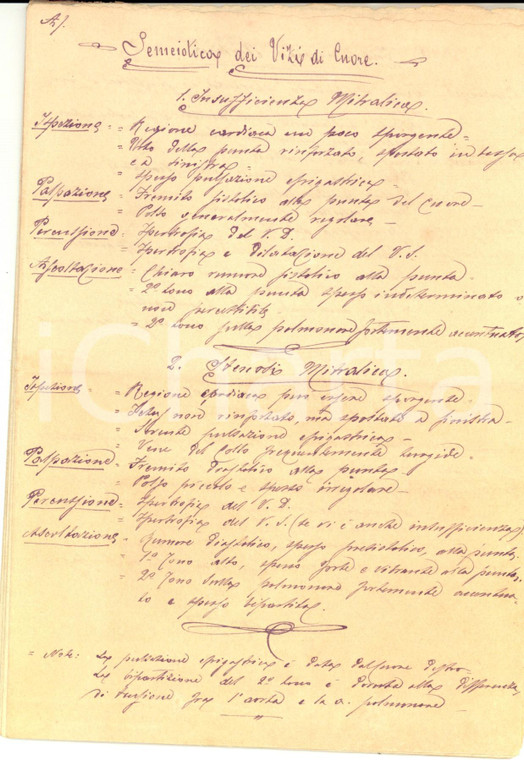 Semeiotica dei Vizi di Cuore.
1. Insufficienza Mitralica.
Ispezione = Regione cardiaca un poco sporgente =
= Urto della punta rinforzato, spostato in basso
e a sinistra =
= Spesso pulsazione epigastrica =
Palpazione = Fremito sistolico alla punta del cuore =
= Polso generalmente regolare =
Percussione = Ipertrofia del V. D.
= Ipertrofia e Dilatazione del V. S.
Ascoltazione = Chiaro rumore sistolico alla punta.
= 2º tono alla punta spesso indeterminato o
non percettibile
= 2º tono sulla polmonare fortemente accentuato
2. Stenosi Mitralica.
Ispezione = Regione cardiaca può essere sporgente =
= non rinforzato, ma spostato a sinistra =
= pulsazione epigastrica =
= Vene del Collo frequentemente turgide =
Palpazione = Fremito Diastolico alla punta =
= Polso piccolo e spesso irregolare =
Percussione = Ipertrofia del V. D.
= Ipertrofia del V. S. (se vi è anche insufficienza)
Ascoltazione = rumore Diastolico, spesso presistolico, alla punta.
= 1º Tono alto, spesso forte e vibrante alla punta.
= 2º Tono sulla polmonare fortemente accentua-
to e spesso bipartito.
= Note: La pulsazione epigastrica è data dal cuore destro =
La bipartizione del 2º tono è dovuta alla differenza
di tensione fra l'aorta e la a. polmonare =
iCharta